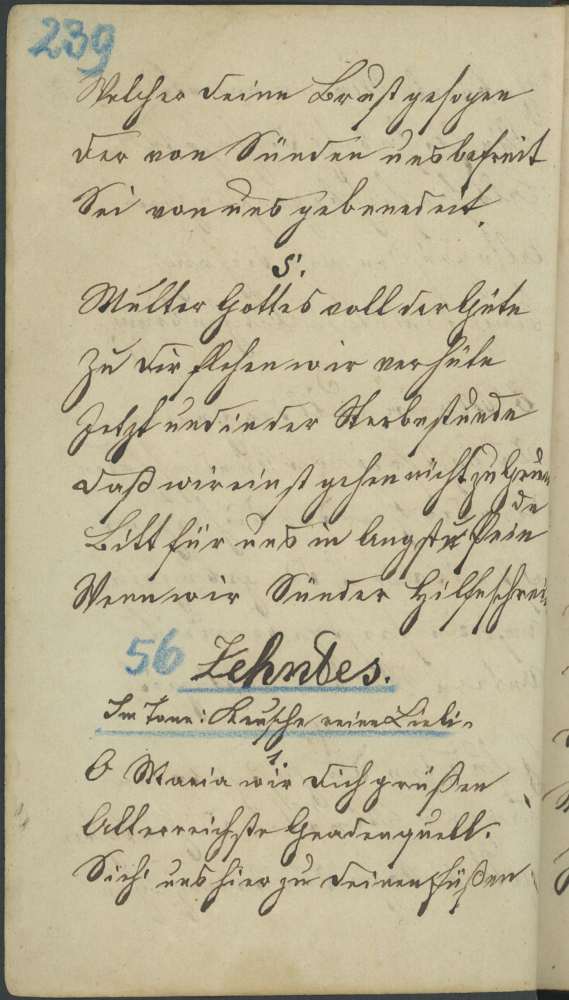 239
Welcher deine Brust gesogen
der von Sünden uns befreit
Sei von uns gebenedeit.
5.
Mutter Gottes voll der Güte
zu dir flehen wir verhüte
Jetzt und in der Sterbestunde
daß wir einst gehen nicht zu Grun
de
Bitt für uns in Angst u Pein
Wenn wir Sünder Hilfe schrei
56 Zehntes.
Im Tone: Keusche reine Lieli.
1.
O Maria wir dich grüßen
Allerreichste Gnadenquell.
Sieh' uns hier zu deinen Füßen